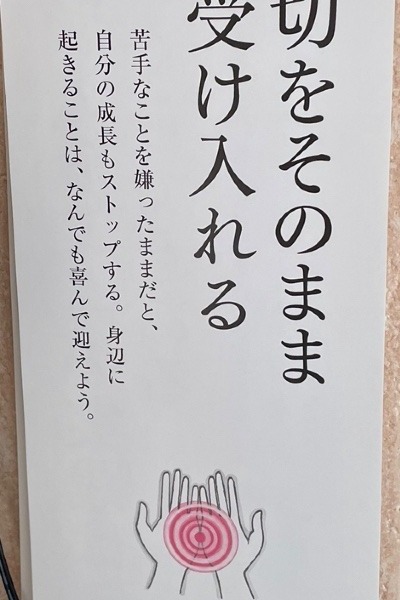 切をそのまま
受け入れる
苦手なことを嫌ったままだと、
自分の成長もストップする。身辺に
起きることは、なんでも喜んで迎えよう。